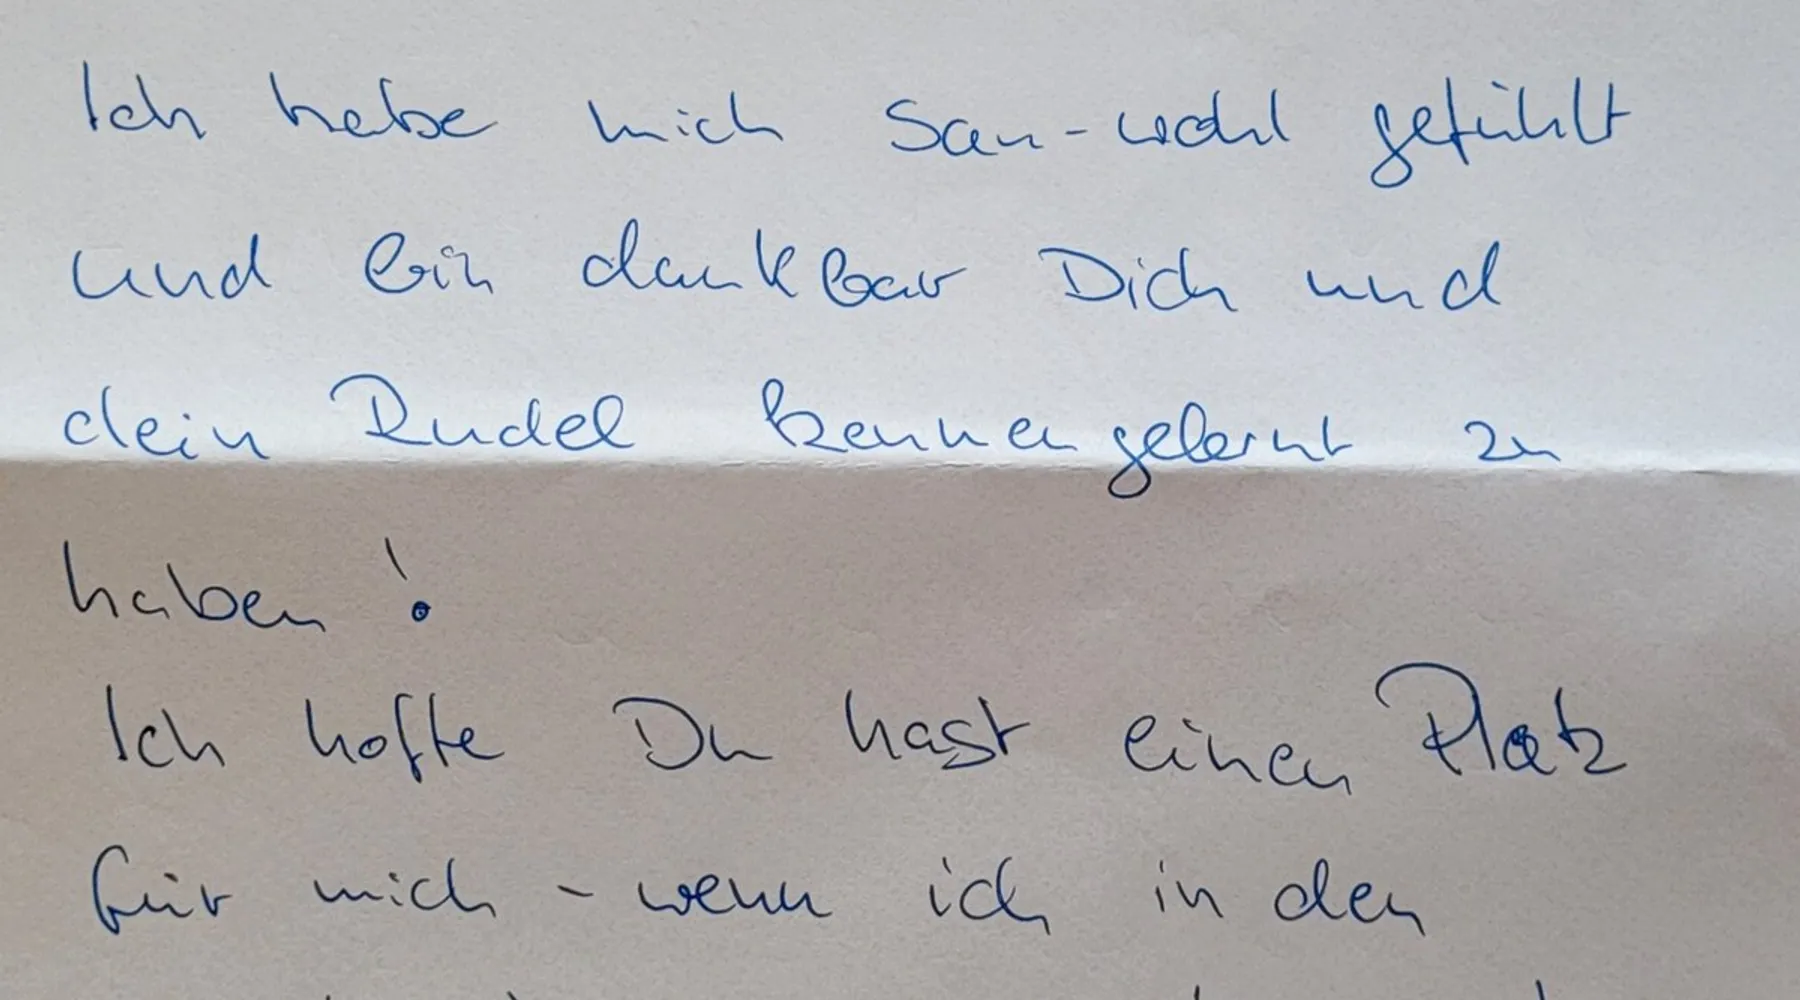 Ich habe mich Sau-wohl gefühlt
und bin dankbar Dich und
dein Rudel kennengelernt zu
haben!
Ich hoffe Du hast einen Platz
für mich - wenn ich in den